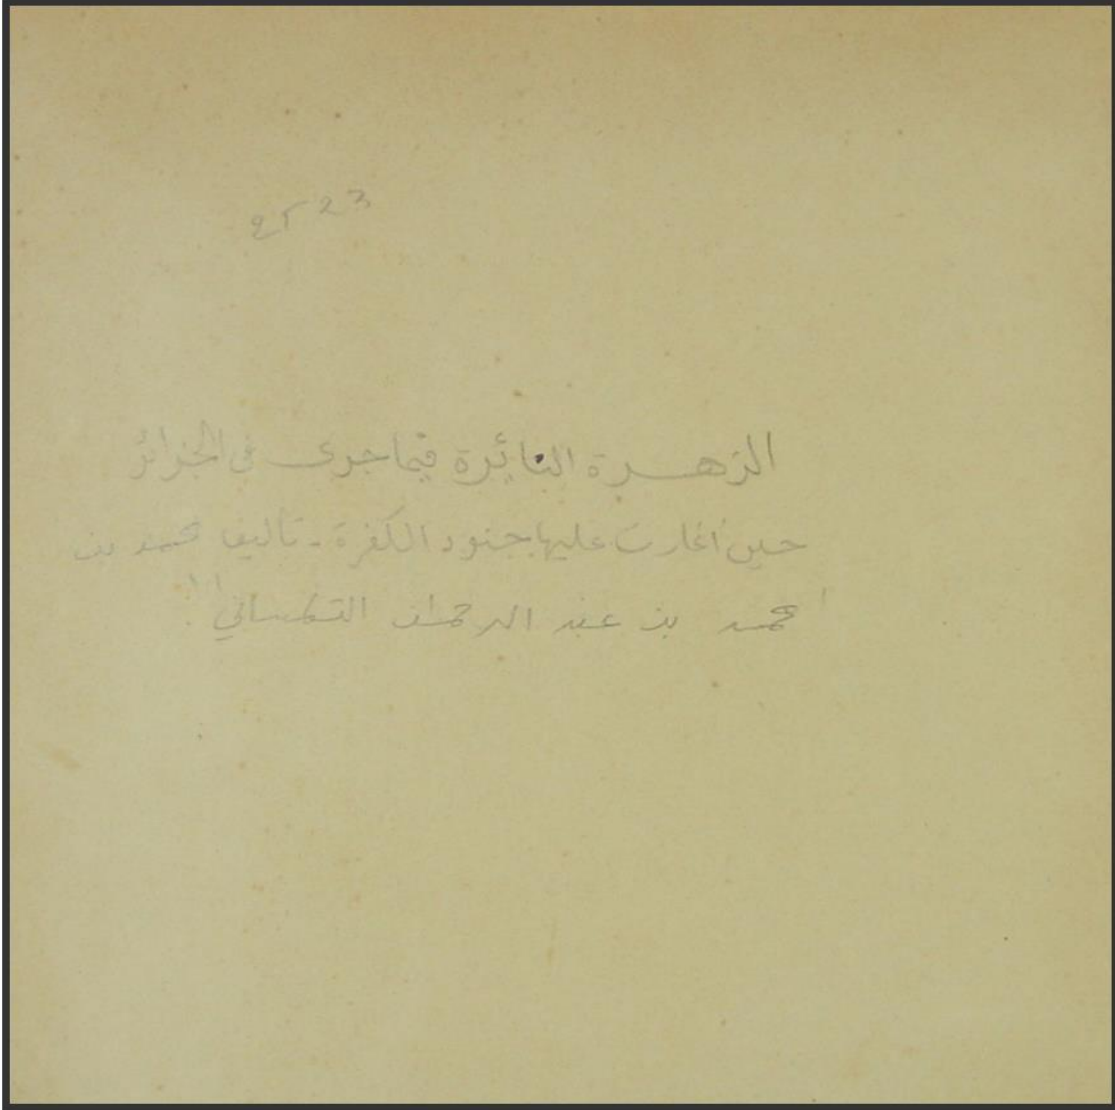 2323
الزهرة النائرة فيما جرى في الجزائر
حين أغارت عليها جنود الكفرة - تأليف محمد بن
محمد بن عبد الرحمان التلمساني